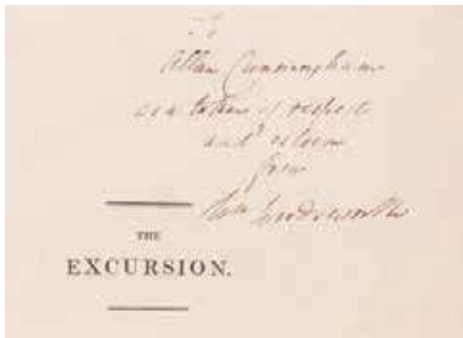 To
Allan Cunningham
as a token of respect
and esteem
from
Wm Wordsworth
THE
EXCURSION.